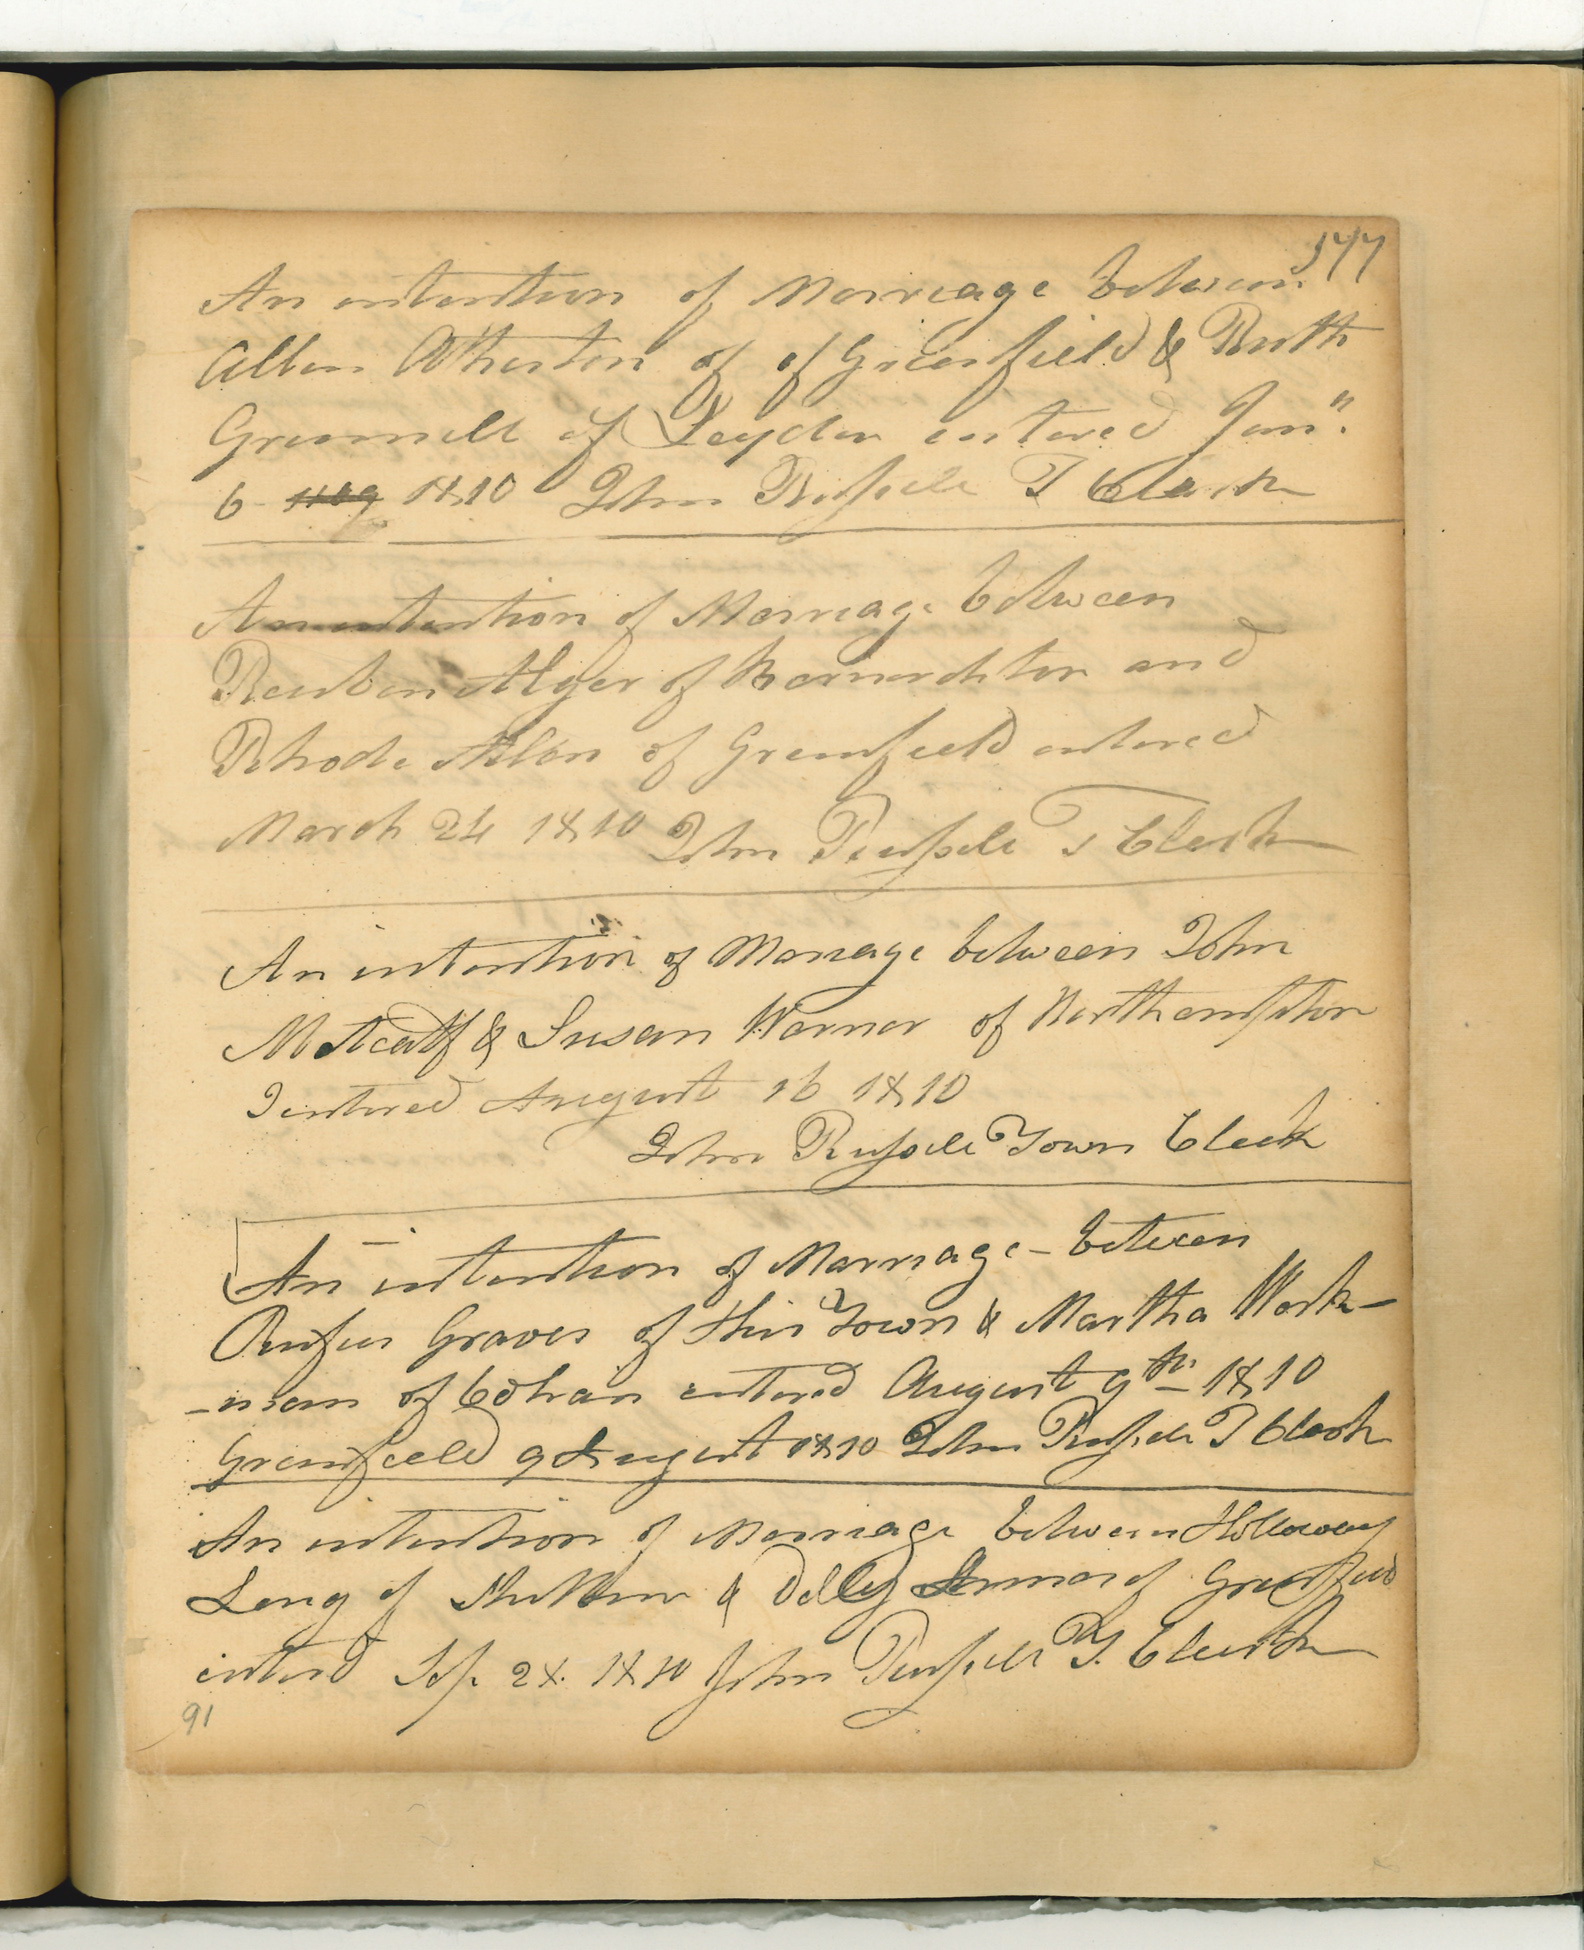 177
An intention of Marriage between
Allen Atherton of of Greenfield & Ruth
Grennell of Leyden entered Jan"
6 1809 1810 John Russell T Clerk
An intention of Marriage between
Reuben Alger of Bernardston and
Rhoda Allen of Greenfield entered
March 24 1810 John Russell T Clerk
An intention of Marriage between John
Metcalf & Susan Warner of Northampton
entered August 16 1810
John Russell Town Clerk
An intention of Marriage - between
Rufus Graves of this Town & Martha Work-
-man of Colrain entered August 9th 1810
Greenfield 9 August 1810 John Russell T Clerk
An intention of Marriage between Holloway
Long of & Dolly of Greenfield
entered Sep. 28. 1810 John Russell T. Clerk
91